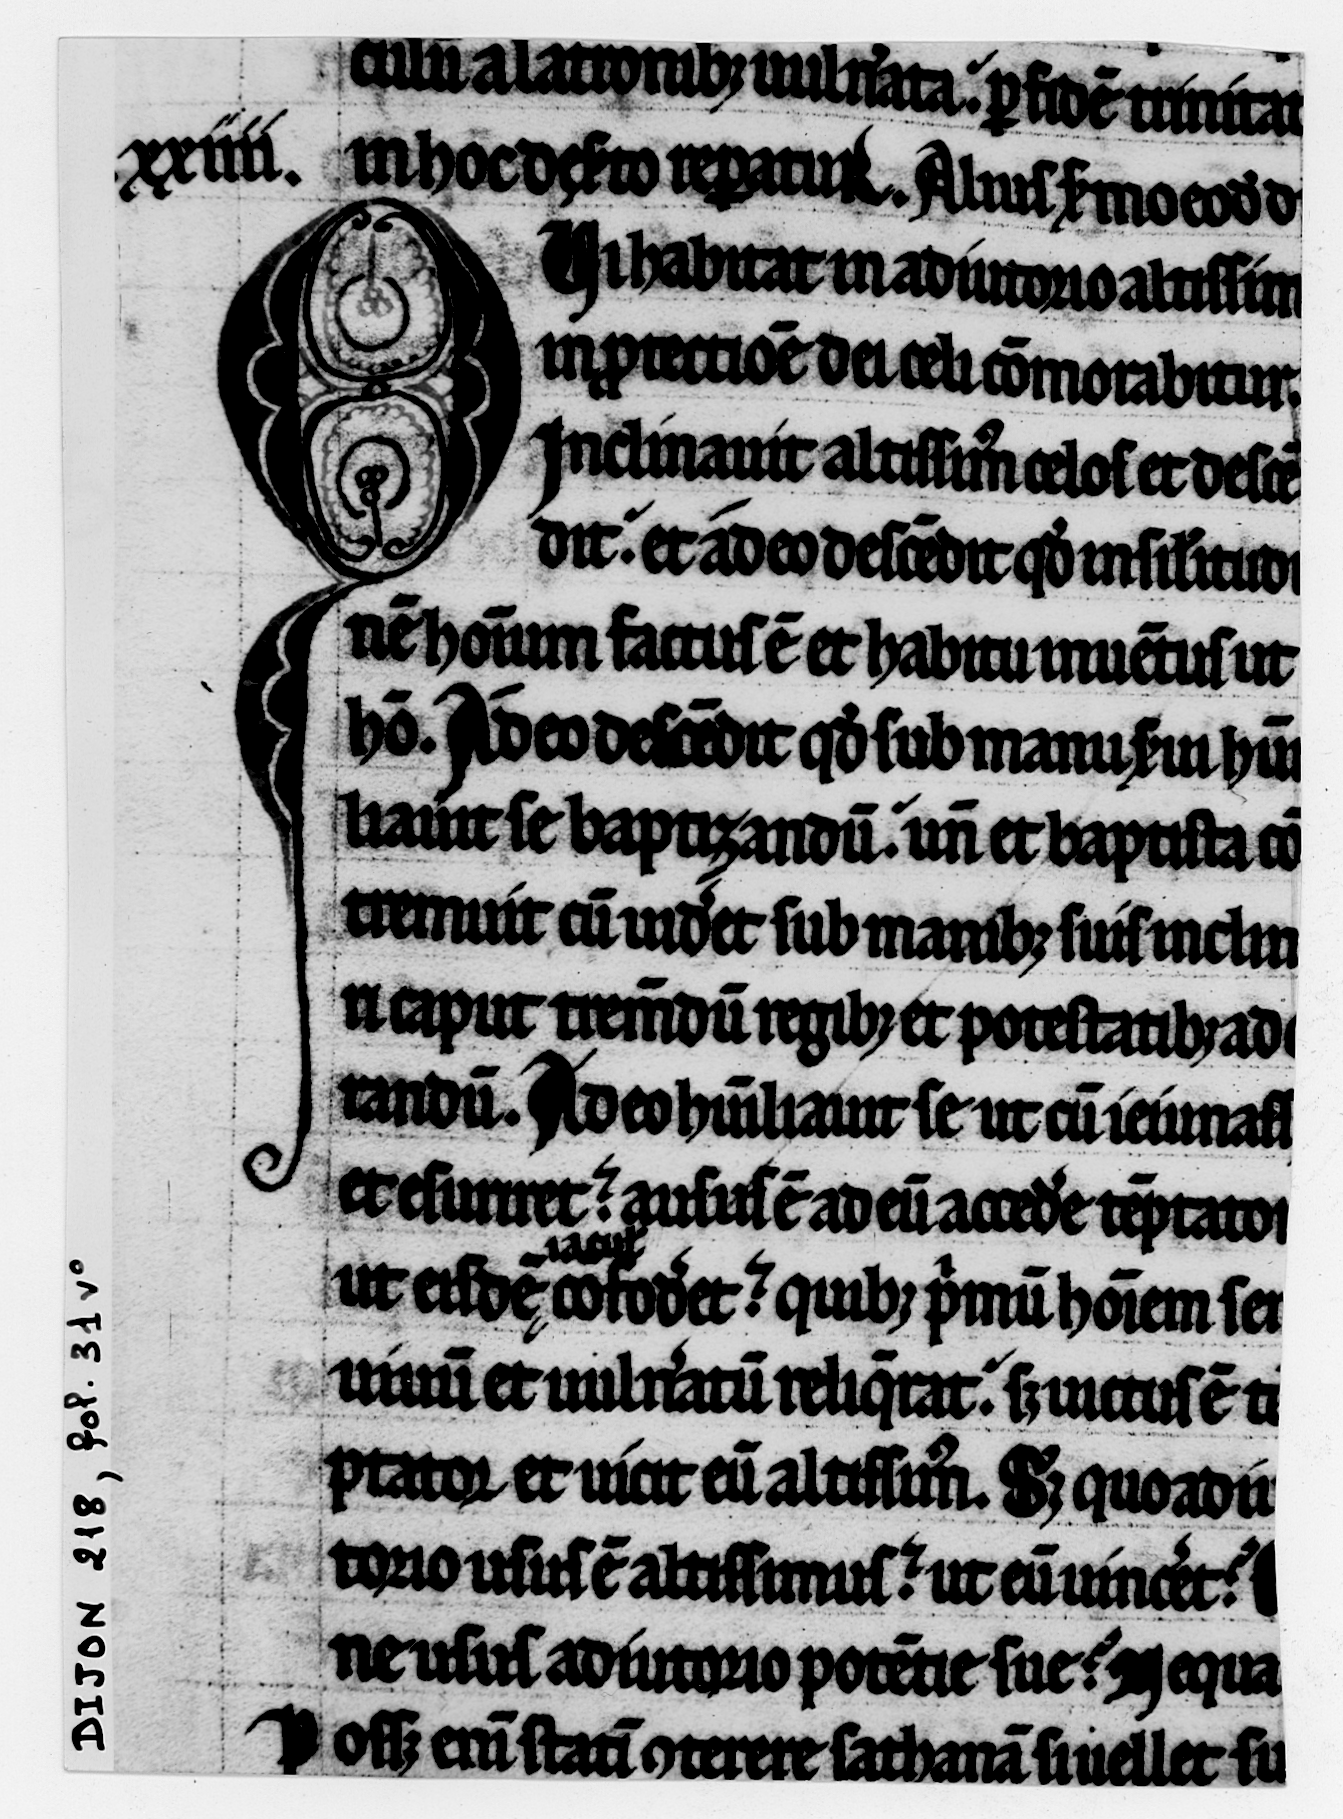 culū a latronibꝫ uuln̾ata. ꝑ fidē trinitat
.xxiiii. in hoc dẹſ̾to reꝑatuR. Alius ẜmo eod̾ d
QUi habitat in adiutorio altiſſim
in ꝓtectiōe dei celi cōmorabitur.
Inclinauit altiſſimꝰ celoſ et deſcē
dit. et adeo deſcēdit qd̾ in ſił̾itudi
nē hoīum factuſ ē et habitu inuētuſ ut
hō. Adeo deſcēdit qd̾ ſub manu ẜui hūi
liauit ſe baptizandū. un̄ et baptiſta cō
tremuit cū uid̾et ſub manibꝫ ſuiſ inclin
ri caput trem̄dū regibꝫ et poteſtatibꝫ ado
randū. Adeo hūiliauit ſe ut cū ieiunaſſ
et eſuriret? auſuſ ē ad eū acced̾e tēptator
iacul̾
ut eiſdē cōfod̾et? quibꝫ p̾mū hōīem ſer
uiuū et uuln̾atū reliq̄rat. ſꝫ uictuſ ē tē
ptator et uicit eū altiſſimꝰ. Sꝫ quo adiu
torio uſuſ ē altiſſimuſ? ut eū uinc̾et?
ne uſuſ adiutorio potētie ſue? Nequa
Poſſꝫ eni̅ ſtatī ꝯterere ſathanā ſi uellet ſu
DIJON 218, fol. 31 v°